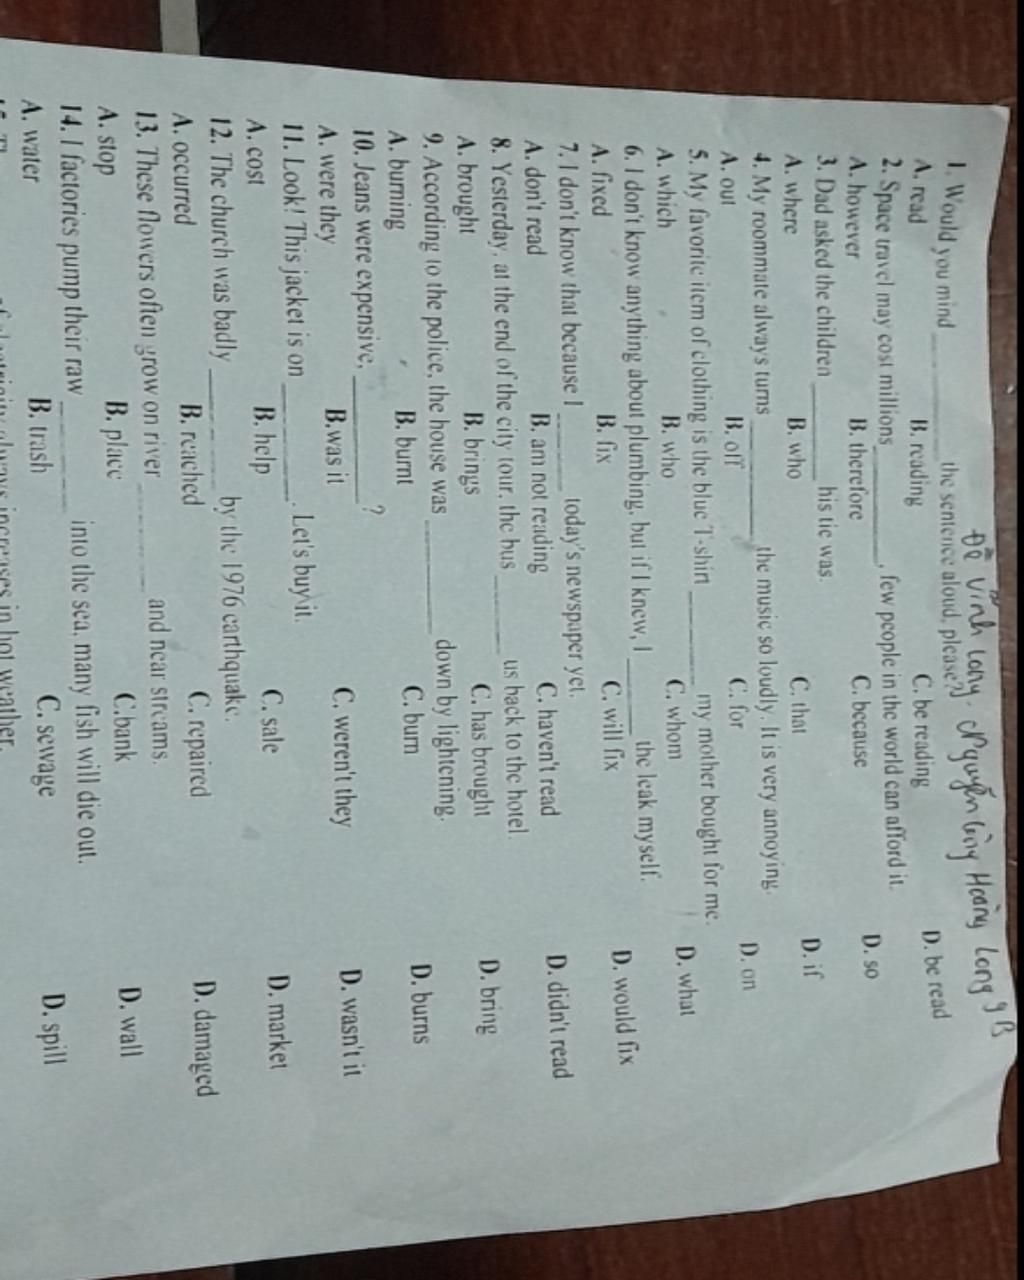 Đề Vĩnh Long. Nguyễn Hoàng Long 9B
1. Would you mind __________ the sentence aloud, please?
A. read B. reading C. be reading D. be read
2. Space travel may cost millions__________, few people in the world can afford it.
A. however B. therefore C. because D. so
3. Dad asked the children __________ his tie was.
A. where B. who C. that D. if
4. My roommate always turns __________ the music so loudly. It is very annoying.
A. out B. off C. for D. on
5. My favorite item of clothing is the blue T-shirt ________ my mother bought for me.
A. which B. who C. whom D. what
6. I don't know anything about plumbing, but if I knew, I ______ the leak myself.
A. fixed B. fix C. will fix D. would fix
7. I don't know that because I ________ today's newspaper yet.
A. don't read B. am not reading C. haven't read D. didn't read
8. Yesterday, at the end of the city tour, the bus ________ us back to the hotel.
A. brought B. brings C. has brought D. bring
9. According to the police, the house was __________ down by lightening.
A. burning B. burnt C. burn D. burns
10. Jeans were expensive, ____________?
A. were they B.was it C. weren't they D. wasn't it
11. Look! This jacket is on __________. Let's buy it.
A. cost B. help C. sale D. market
12. The church was badly __________ by the 1976 earthquake.
A. occurred B. reached C. repaired D. damaged
13. These flowers often grow on river __________ and near streams.
A. stop B. place C.bank D. wall
14. I factories pump their raw __________ into the sea, many fish will die out.
A. water B. trash C. sewage D. spill
always increases in hot weather.